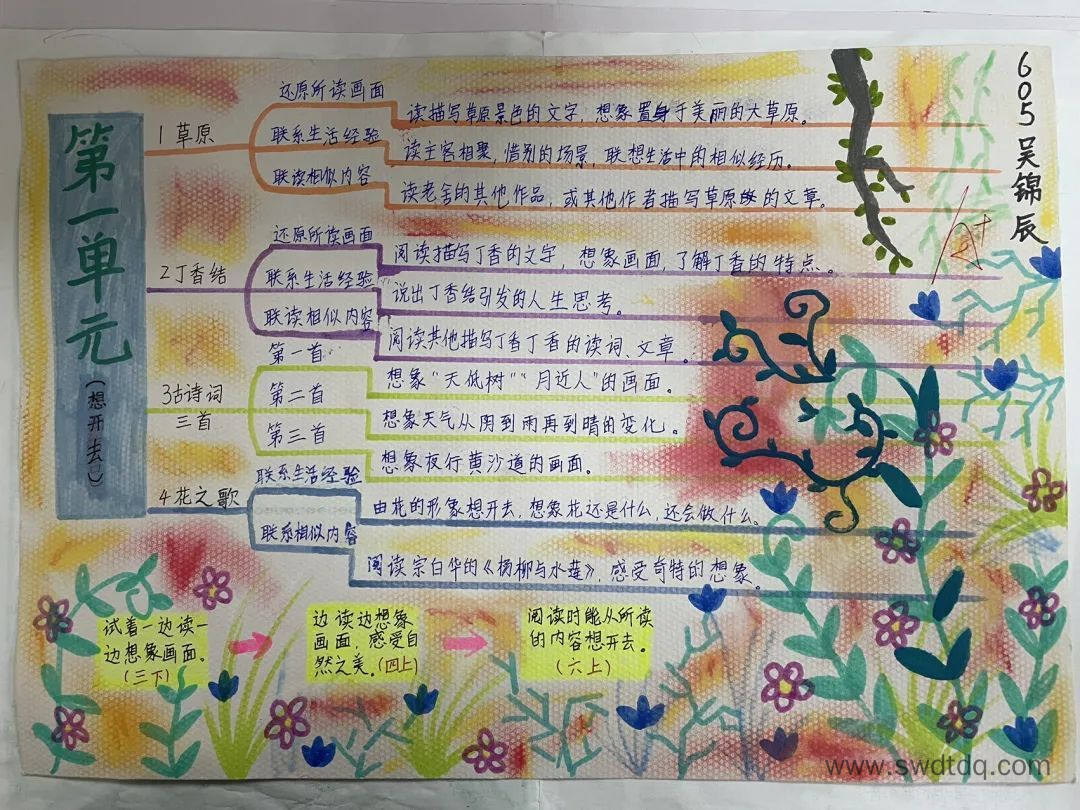 第一单元
(想开去)
605 吴锦辰
A+
1草原
还原所读画面
读描写草原景色的文字，想象置身于美丽的大草原。
联系生活经验
读主客相聚，惜别的场景，联想生活中的相似经历。
联读相似内容
读老舍的其他作品，或其他作者描写草原的文章。
2丁香结
还原所读画面
阅读描写丁香的文字，想象画面，了解丁香的特点。
联系生活经验
说出丁香结引发的人生思考。
联读相似内容
阅读其他描写丁香丁香的读词、文章。
3古诗词
三首
第一首
想象“天低树”“月近人”的画面。
第二首
想象天气从阴到雨再到晴的变化。
第三首
想象夜行黄沙道的画面。
4花之歌
联系生活经验
由花的形象想开去，想象花还是什么，还会做什么。
联系相似内容
阅读宗白华的《杨柳与水莲》，感受奇特的想象。
试着一边读一
边想象画面。
(三下)
边读边想象
画面，感受自
然之美。(四上)
阅读时能从所读
的内容想开去。
(六上)
www.swdtdq.com